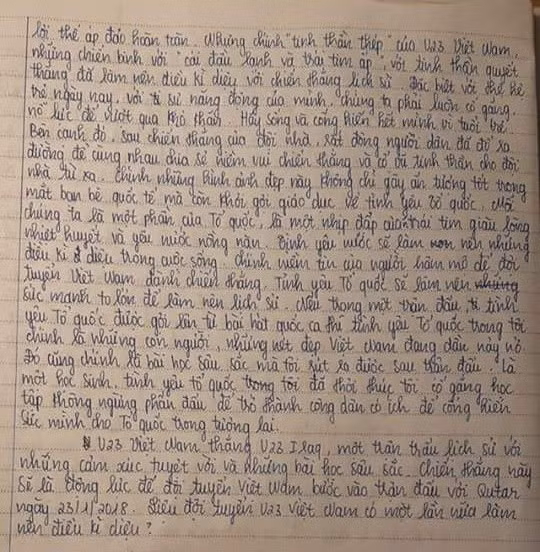 lợi thế áp đảo hoàn toàn. Nhưng chính "tinh thần thép" của U23 Việt Nam,
những chiến binh với "cái đầu lạnh và trái tim ấp", với tinh thần quyết
thắng đã làm nên điều kì diệu với chiến thắng lịch sử. Đặc biệt với thế hệ
trẻ ngày nay, với sự năng động của mình, chúng ta phải luôn cố gắng,
nỗ lực để vượt qua khó khăn. Hãy sống và cống hiến hết mình vì tuổi trẻ.
Bên cạnh đó, sau chiến thắng của đội nhà, rất đông người dân đã đổ ra
đường để cùng nhau chia sẻ niềm vui chiến thắng và cổ vũ tinh thần cho đội
nhà từ xa. Chính những hình ảnh đẹp này không chỉ gây ấn tượng tốt trong
mắt bạn bè quốc tế mà còn khơi gợi giáo dục về tình yêu tổ quốc. Mỗi
chúng ta là một phần của Tổ quốc, là một nhịp đập của trái tim giàu lòng
nhiệt huyết và yêu nước nồng nàn. Tình yêu nước sẽ làm nên những
điều kì diệu trong cuộc sống. Chính niềm tin của người hâm mộ để đội
tuyển Việt Nam dành chiến thắng. Tình yêu Tổ quốc sẽ làm nên
sức mạnh to lớn để làm nên lịch sử. Nếu trong một trận đấu tình
yêu Tổ quốc được gói lên từ bài hát quốc ca thì tình yêu Tổ quốc trong tôi
chính là những con người, những nét đẹp Việt Nam đang dần nảy nở.
Đó cũng chính là bài học sâu sắc mà tôi rút ra được sau trận đấu. Là
một học sinh, tình yêu tổ quốc trong tôi đã thôi thúc tôi cố gắng học
tập không ngừng phấn đấu để trở thành công dân có ích để cống hiến
sức mình cho Tổ quốc trong tương lai.
U23 Việt Nam thắng U23 Iraq, một trận trấu lịch sử với
những cảm xúc tuyệt vời và những bài học sâu sắc. Chiến thắng này
sẽ là động lực để đội tuyển Việt Nam bước vào trận đấu với Qutar
ngày 23/1/2018. Liệu đội tuyển U23 Việt Nam có một lần nữa làm
nên điều kì diệu?